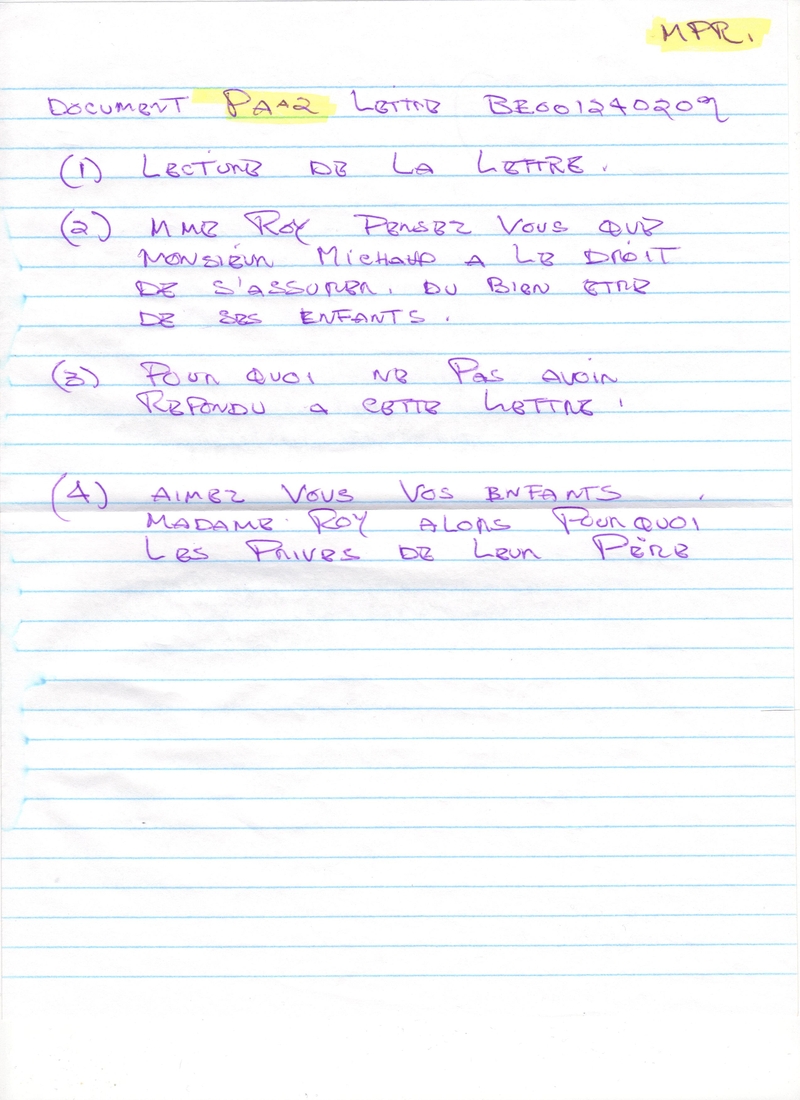 MPR.
DOCUMENT PAA2 LETTRE BE001240209
(1) LECTURE DE LA LETTRE.
(2) MME ROY PENSEZ VOUS QUE
MONSIEUR MICHAUD A LE DROIT
DE S'ASSURER. DU BIEN ETRE
DE SES ENFANTS.
(3) POUR QUOI NE PAS AVOIR
REPONDU A CETTE LETTRE.
(4) AIMEZ VOUS VOS ENFANTS.
MADAME ROY ALORS POURQUOI
LES PRIVES DE LEUR PÈRE